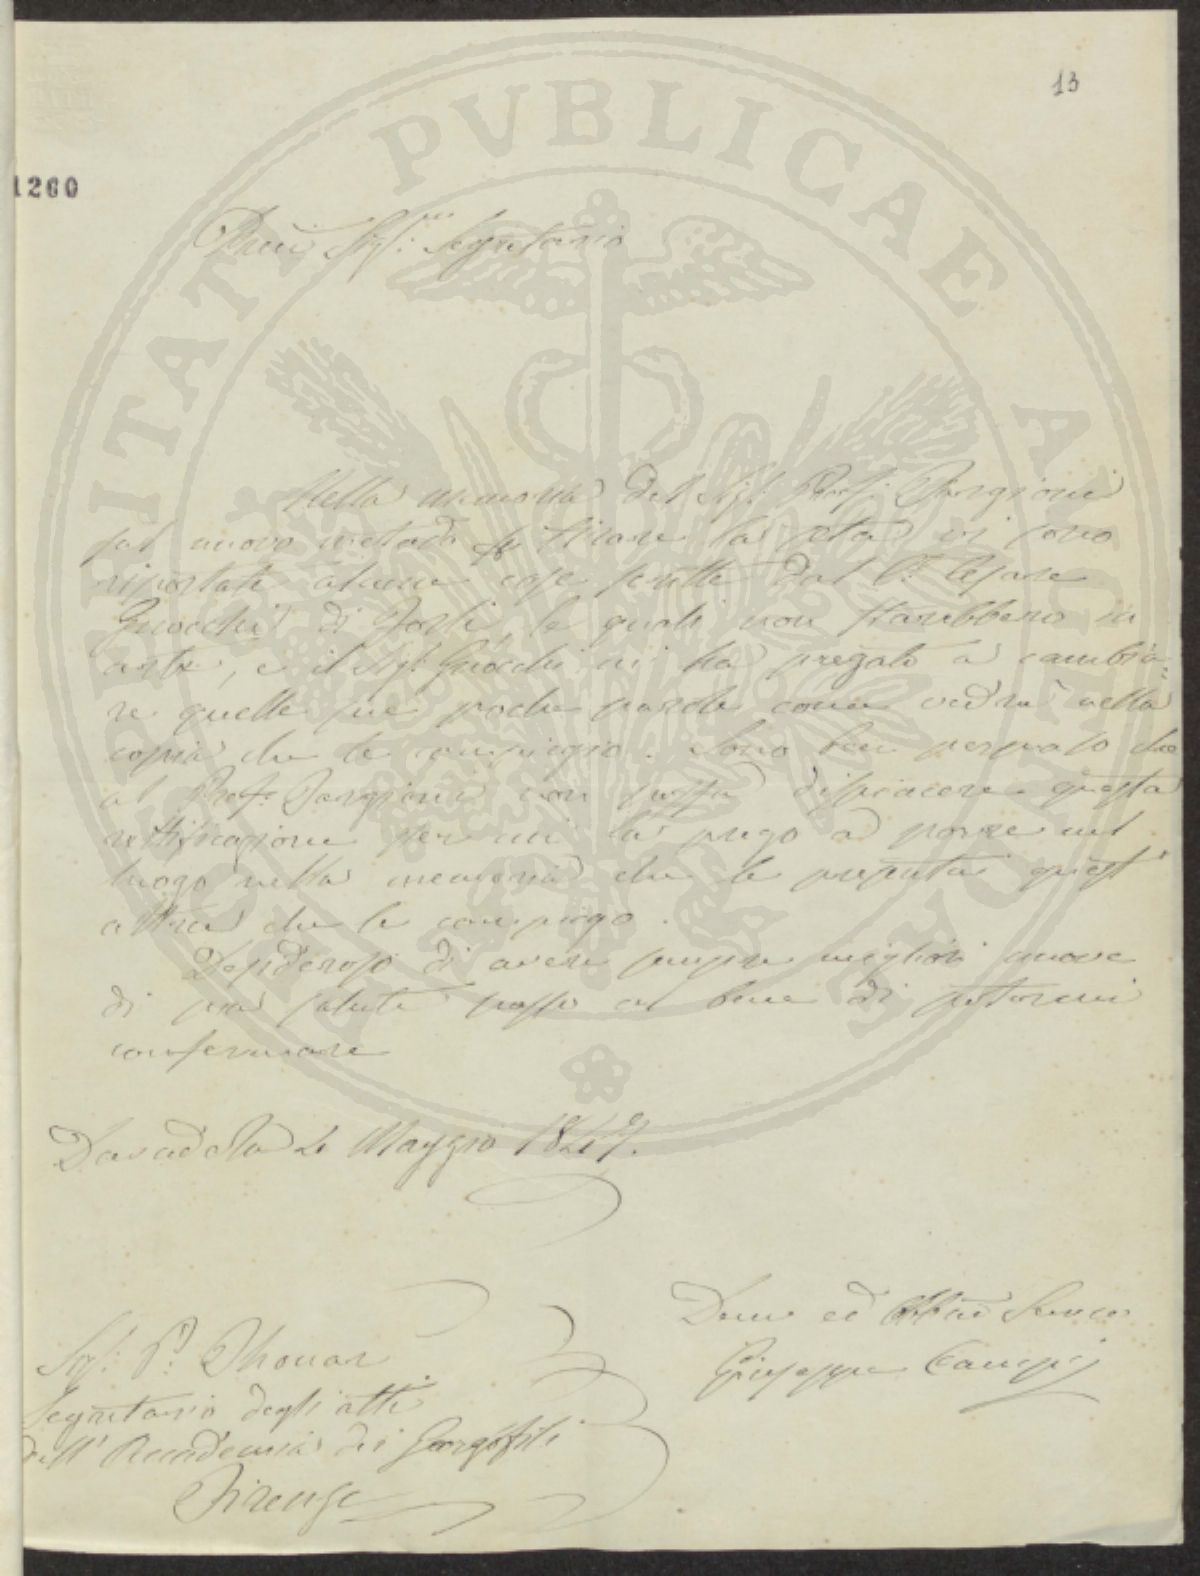 13
1260
Sig.: Segretario
Nella memoria del Sig. Prof. Targioni
sul nuovo metodo di tirare la seta vi sono
riportate alcune cose scritte dal S. Cesare
Gnocchi di Forlì, le quali non starebbero in
arte, e il Sig. Gnocchi mi ha pregato a cambia=
re quelle sue poche parole come vedrà nella
copia che le compiego. Sono ben persuaso che
al Prof. Targioni non possa dispiacere questa
rettificazione per cui la prego a porre nel
luogo nella memoria che le presentai quest'
altra che le compiego.
Desideroso di avere sempre migliori nuove
di sua salute passo al bene di potermi
confermare
Maggio 1847.
Sig.: P. Thouar
Segretario degli atti
dell'Accademia dei Georgofili
Firenze
ed Servo
Giuseppe
PROSPERITATI PVBLICAE AVGENDAE